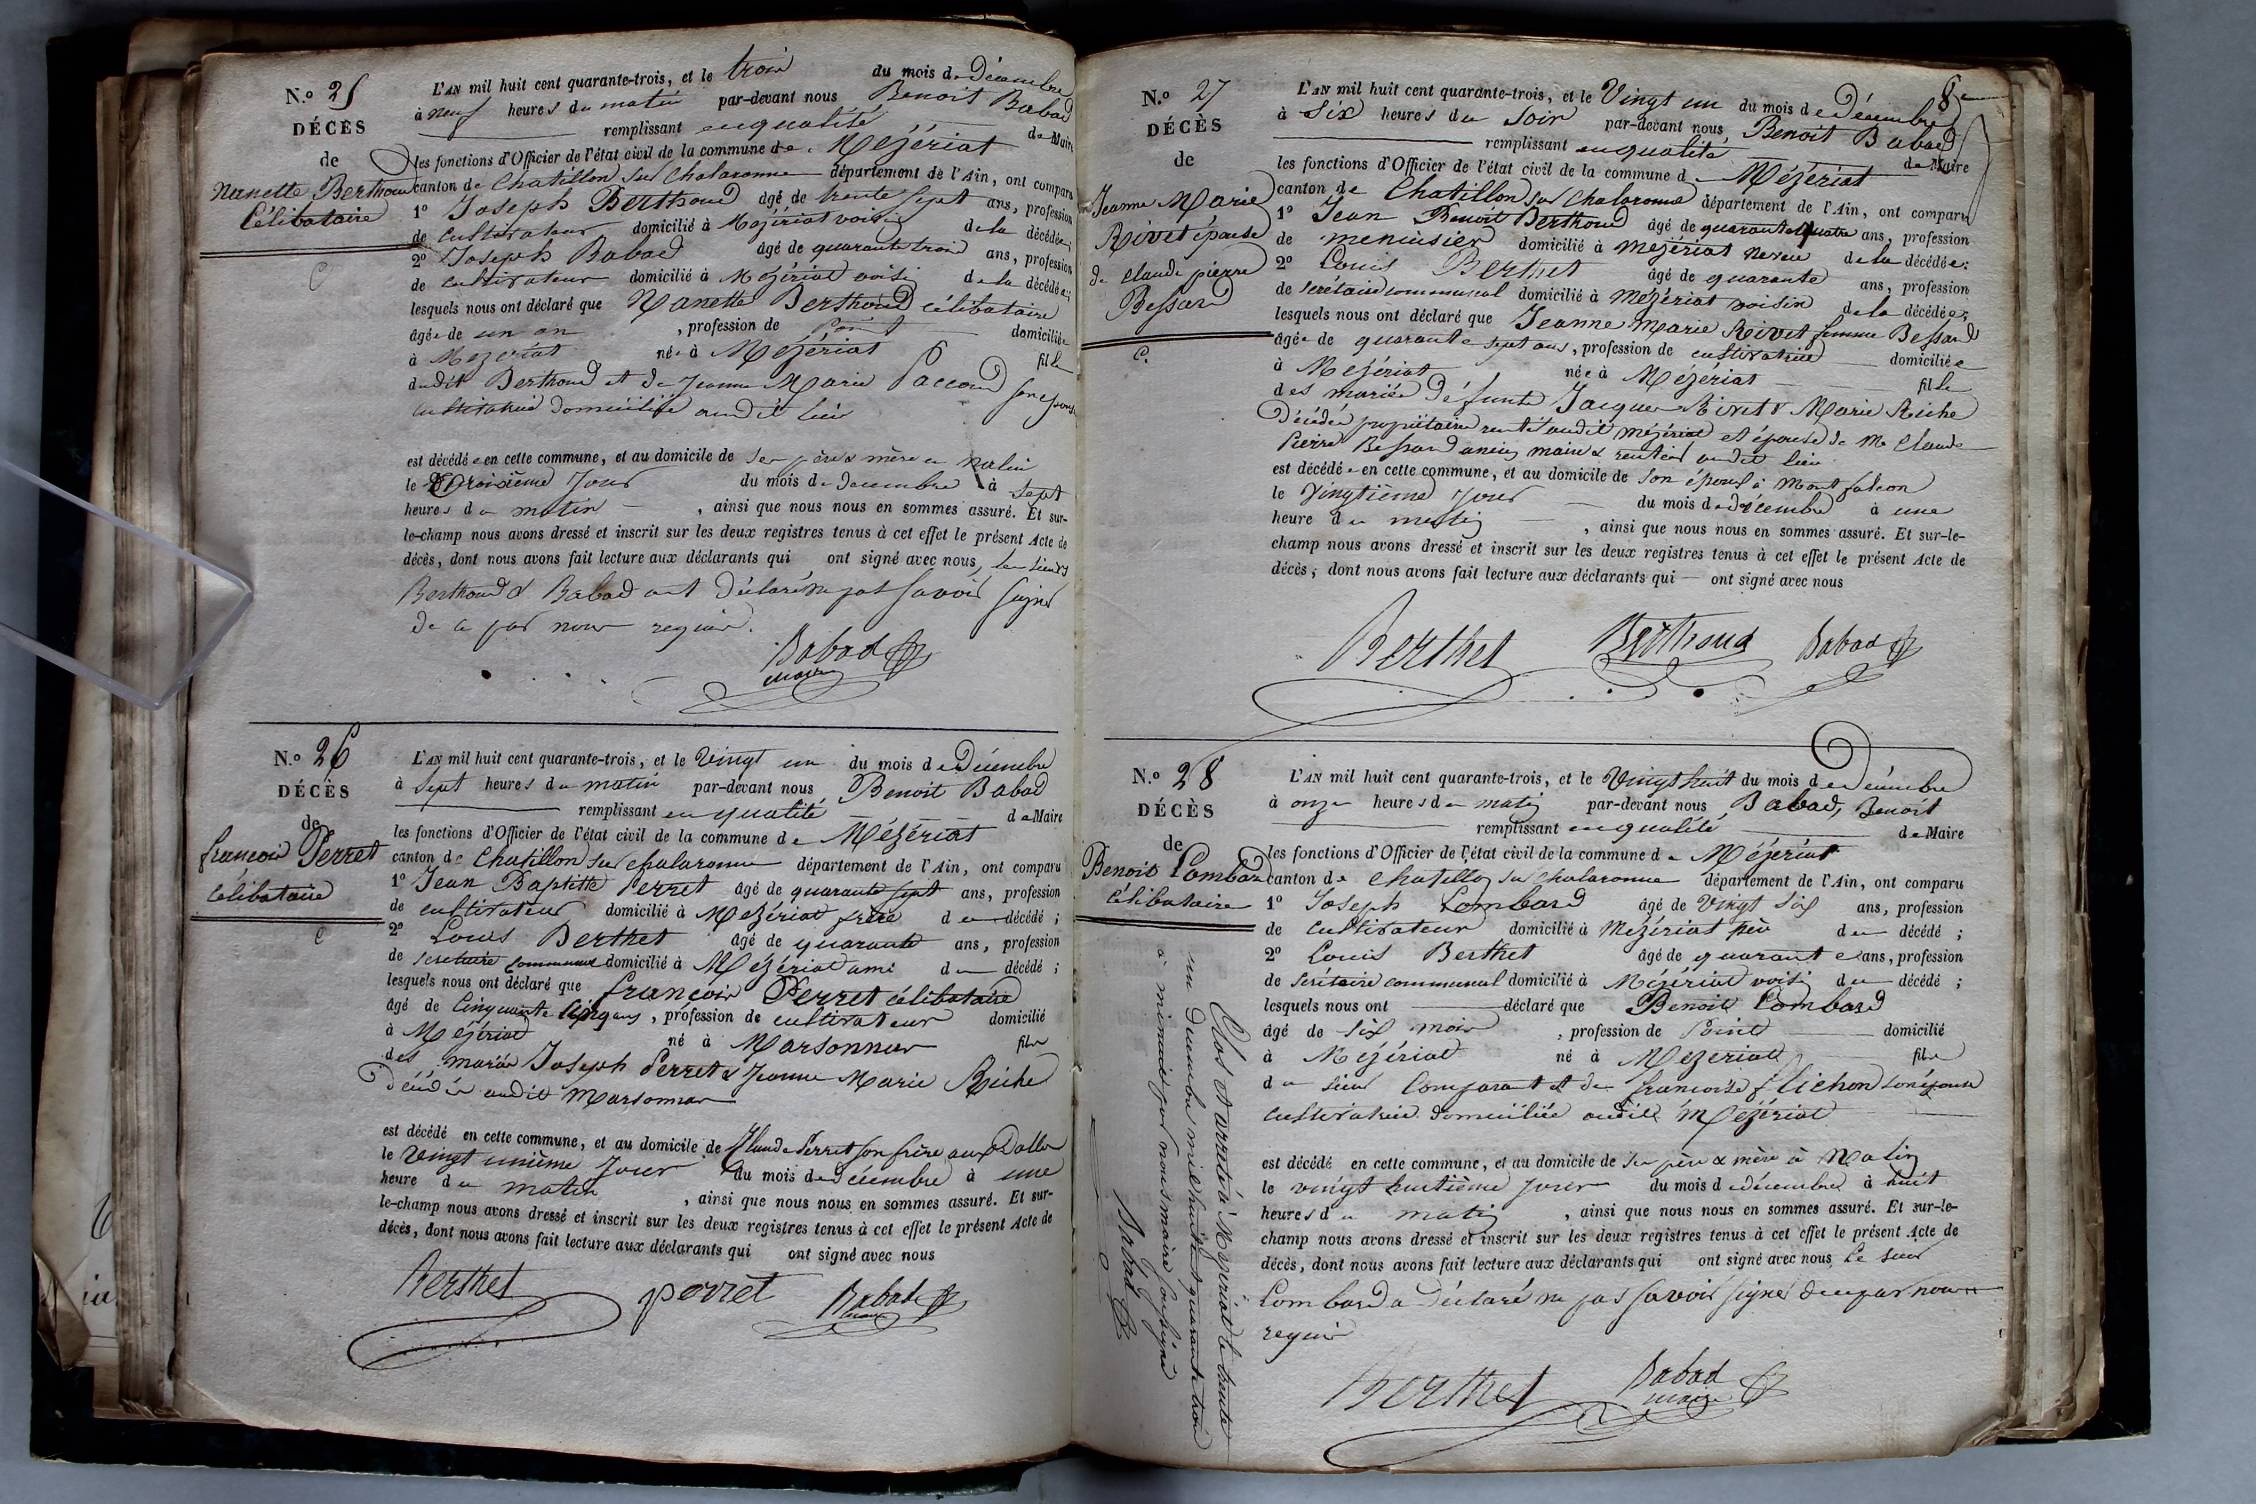 N.° 25
DÉCÈS
de
Nanette Berthoud
Célibataire
C
L'AN mil huit cent quarante-trois, et le trois du mois de Décembre
à neuf heures du matin par-devant nous Benoit Babad
remplissant en qualité de Maire
les fonctions d'Officier de l'état civil de la commune de Mézériat
canton de Chatillon sur Chalaronne département de l'Ain, ont comparu
1° Joseph Berthoud âgé de trente sept ans, profession
de cultivateur domicilié à Mézériat voisin de la décédée;
2° Joseph Babad âgé de quarante trois ans, profession
de cultivateur domicilié à Mézériat voisin de la décédée;
lesquels nous ont déclaré que Nanette Berthoud célibataire
âgée de un an, profession de point domiciliée
à Mezeriat née à Mézériat fille
dudit Berthoud et de Jeanne Marie Paccoud son épouse
cultivatrice domiciliée audit lieu
est décédée en cette commune, et au domicile de ses père & mère en Malin
le troisième jour du mois de decembre à sept
heures du matin, ainsi que nous nous en sommes assuré. Et sur-
le-champ nous avons dressé et inscrit sur les deux registres tenus à cet effet le présent Acte de
décès, dont nous avons fait lecture aux déclarants qui ont signé avec nous, les sieurs
Berthoud & Babad ont déclaré ne pas savoir signer
de ce par nous requis.
Babad
maire
N.° 26
DÉCÈS
de
françois Perret
célibataire
C
L'AN mil huit cent quarante-trois, et le vingt un du mois de Décembre
à sept heures du matin par-devant nous Benoit Babad
remplissant en qualité de Maire
les fonctions d'Officier de l'état civil de la commune de Mézériat
canton de Chatillon sur chalaronne département de l'Ain, ont comparu
1° Jean Baptiste Perret âgé de quarante sept ans, profession
de cultivateur domicilié à Mézériat frère du décédé;
2° Louis Berthet âgé de quarante ans, profession
de secretaire communal domicilié à Mézériat ami du décédé;
lesquels nous ont déclaré que françois Perret célibataire
âgé de Cinquante cinq ans, profession de cultivateur domicilié
à Mézériat né à Marsonnas fils
des mariés Joseph Perret & Jeanne Marie Riche
Décédés audit Marsonnas
est décédé en cette commune, et au domicile de Claude Perret son frère aux Dalles
le vingt unième jour du mois de décembre à une
heure du matin, ainsi que nous nous en sommes assuré. Et sur-
le-champ nous avons dressé et inscrit sur les deux registres tenus à cet effet le présent Acte de
décès, dont nous avons fait lecture aux déclarants qui ont signé avec nous
Berthet perret Babad
maire
8e
N.° 27
DÉCÈS
de
Jeanne Marie
Rivet épouse
de claude pierre
Bessard
C.
L'AN mil huit cent quarante-trois, et le Vingt un du mois de Décembre
à Six heures du Soir par-devant nous Benoit Babad
remplissant en qualité de Maire
les fonctions d'Officier de l'état civil de la commune de Mézériat
canton de Chatillon sur Chalaronne département de l'Ain, ont comparu
1° Jean Benoit Berthoud âgé de quarante quatre ans, profession
de menuisier domicilié à Mézériat neveu de la décédée;
2° Louis Berthet âgé de quarante ans, profession
de secrétaire communal domicilié à Mézériat voisin de la décédée;
lesquels nous ont déclaré que Jeanne Marie Rivet femme Bessard
âgée de quarante sept ans, profession de cultivatrice domiciliée
à Mézériat née à Mézériat fille
des mariés défunts Jacques Rivet & Marie Riche
Décédés propriétaires rentés audit Mézériat et épouse de Me Claude
Pierre Bessard ancien maire & rentier audit lieu
est décédée en cette commune, et au domicile de son époux à Montfalcon
le Vingtième jour du mois de décembre à une
heure du matin, ainsi que nous nous en sommes assuré. Et sur-le-
champ nous avons dressé et inscrit sur les deux registres tenus à cet effet le présent Acte de
décès; dont nous avons fait lecture aux déclarants qui ont signé avec nous
Berthet Berthoud Babad
N.° 28
DÉCÈS
de
Benoit Lombard
célibataire
L'AN mil huit cent quarante-trois, et le Vingt huit du mois de Décembre
à onze heures du matin par-devant nous Babad, Benoit
remplissant en qualité de Maire
les fonctions d'Officier de l'état civil de la commune de Mézériat
canton de Chatillon sur Chalaronne département de l'Ain, ont comparu
1° Joseph Lombard âgé de vingt six ans, profession
de cultivateur domicilié à Mézériat père du décédé;
2° Louis Berthet âgé de quarante ans, profession
de secrétaire communal domicilié à Mézériat voisin du décédé;
lesquels nous ont déclaré que Benoit Lombard
âgé de six mois, profession de point domicilié
à Mézériat né à Mezeriat fils
du sieur Comparant et de françoise Flichon son épouse
cultivatrice domiciliée audit Mézériat
est décédé en cette commune, et au domicile de ses père & mère à Malin
le vingt huitième jour du mois de décembre à huit
heures du matin, ainsi que nous nous en sommes assuré. Et sur-le-
champ nous avons dressé et inscrit sur les deux registres tenus à cet effet le présent Acte de
décès, dont nous avons fait lecture aux déclarants qui ont signé avec nous Le sieur
Lombard a déclaré ne pas savoir signer de ce par nous
requis
Berthet Babad
maire
Clos et arrêté à Mézériat le trente
un Décembre mil huit cent quarante trois
à minuit par nous maire soussigné
Babad